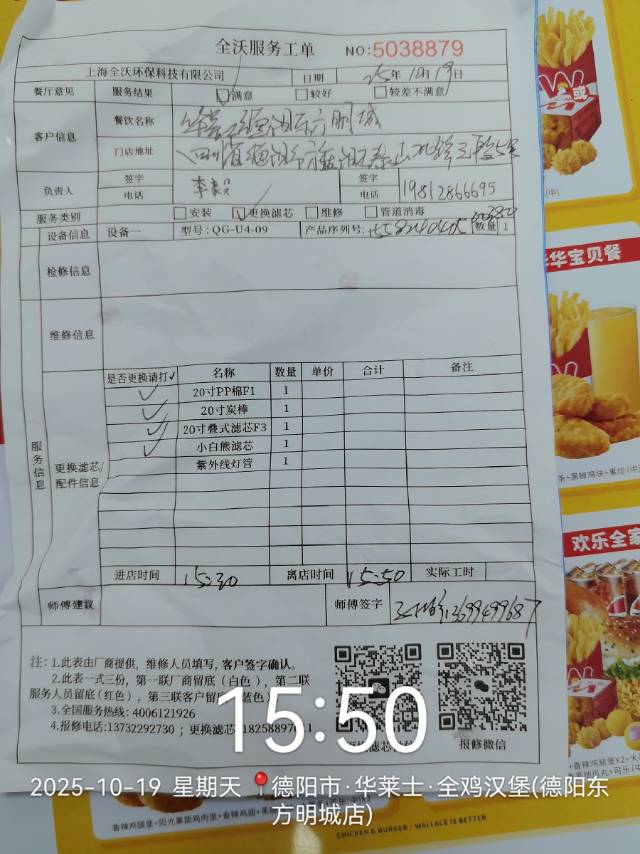 全沃服务工单 NO:5038879
上海全沃环保科技有限公司 日期 25年10月19日
餐厅意见 服务结果 满意 较好 较差不满意
客户信息 餐饮名称
门店地址
负责人 签字 签字
电话 电话 19812866695
服务类别 安装 更换滤芯 维修 管道消毒
设备信息 设备一 型号:QG-U4-09 产品序列号: 数量 1
检修信息
维修信息
服务信息
更换滤芯/配件信息
是否更换请打✓ 名称 数量 单价 合计 备注
✓ 20寸PP棉F1 1
✓ 20寸炭棒 1
✓ 20寸叠式滤芯F3 1
✓ 小白熊滤芯 1
紫外线灯管 1
进店时间 15:30 离店时间 15:50 实际工时
师傅建议 师傅签字 13699499687
注: 1.此表由厂商提供，维修人员填写, 客户签字确认。
2.此表一式三份，第一联厂商留底(白色)，第二联
服务人员留底(红色)，第三联客户留
3.全国服务热线: 4006121926
4.报修电话:13732292730 ; 更换滤芯
报修微信
15:50
2025-10-19 星期天 德阳市·华莱士·全鸡汉堡(德阳东
方明城店)
华宝贝餐
欢乐全家
CHICKEN & BURGER · WALLACE IS BETTER